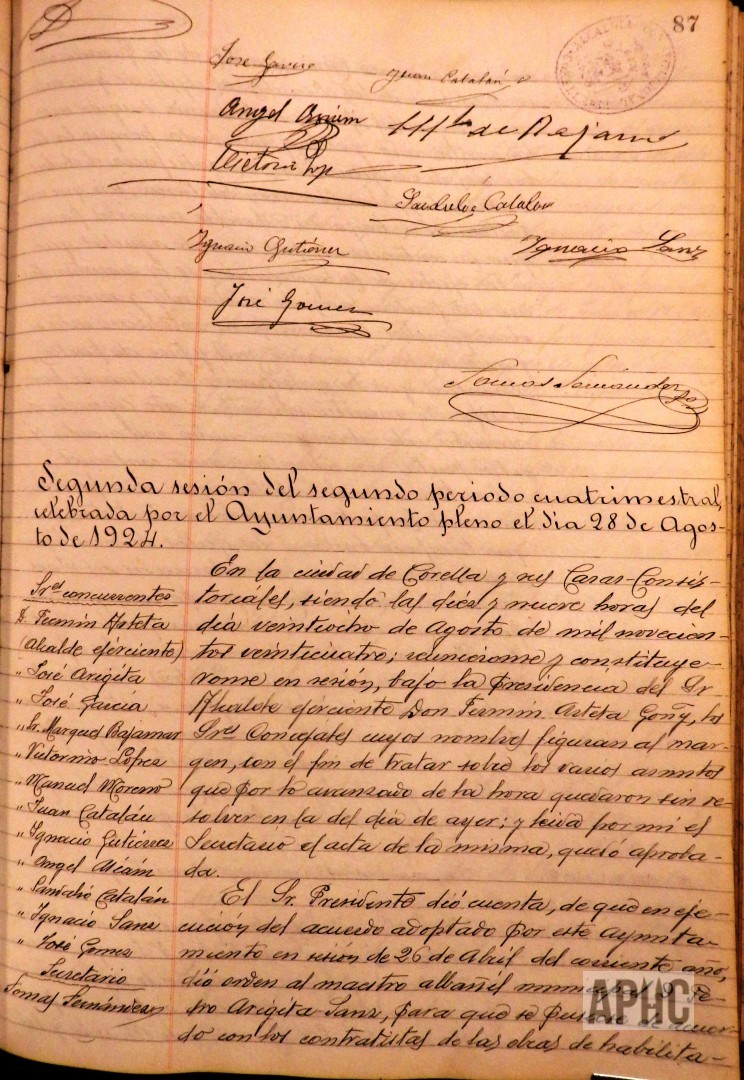 87
José García
Juan Catalán
Angel
de Bajamar
Victorino Lop
Sandalio Catalan
Ignacio Gutiérrez
Ignacio Sanz
José Gomez
Tomás Fernández
Segunda sesión del segundo periodo cuatrimestral,
celebrada por el Ayuntamiento pleno el dia 28 de Agos-
to de 1924.
Sres concurrentes
D. Fermín Arteta
(Alcalde ejerciente)
" José Arigita
" José García
" Sr. Marques Bajamar
" Victorino López
" Manuel Moreno
" Juan Catalán
" Ignacio Gutiérrez
" Angel Alcáin
" Sandalio Catalán
" Ignacio Sanz
" José Gomez
Secretario
Tomás Fernández
En la ciudad de Corella y sus Casas-Consis-
toriales, siendo las diez y nueve horas del
día veintiocho de Agosto de mil novecien-
tos veinticuatro; reuniéronse y constituye-
ronse en sesión, bajo la Presidencia del Sr
Alcalde ejerciente Don Fermín Arteta Goñy, los
Sres Concejales cuyos nombres figuran al mar-
gen, con el fin de tratar sobre los varios asuntos
que por lo avanzado de la hora quedaron sin re
solver en la del día de ayer; y leida por mi el
Secretario el acta de la misma, quedó aproba-
da.
El Sr. Presidente dió cuenta, de que en eje-
cución del acuerdo adoptado por este Ayunta-
miento en sesión de 26 de Abril del corriente año,
dió orden al maestro albañil municipal D. Pe-
dro Arigita Sanz, para que se pusiese de acuer-
do con los contratistas de las obras de habilita-
APHC